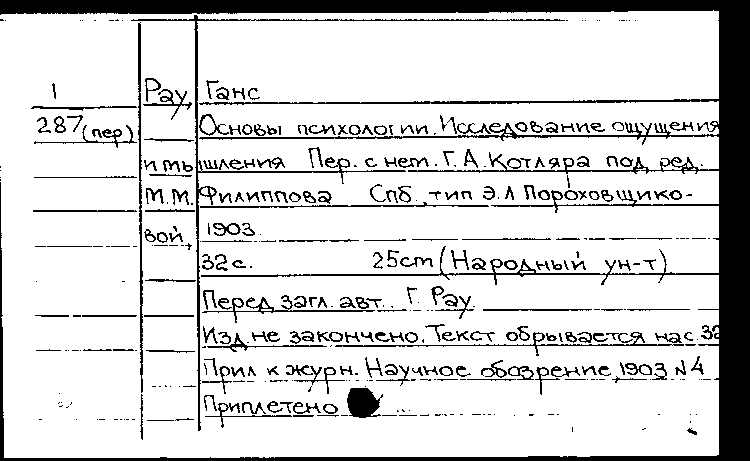 1 Рау, Ганс
287 (пер) Основы психологии. Исследование ощущения
и мышления Пер. с нем. Г. А. Котляра под ред.
М. М. Филиппова Спб., тип Э. Л Пороховщико-
вой, 1903.
32 с. 25cm (Народный ун-т)
Перед загл. авт.. Г. Рау.
Изд не закончено. Текст обрывается на с 32
Прил к журн. Научное обозрение, 1903 N4
Приплетено